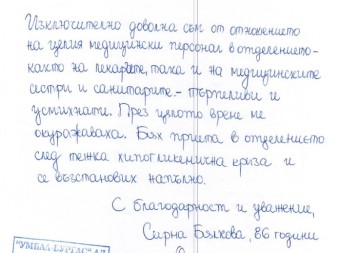 Изключително доволна съм от отношението
на целия медицински персонал в отделението-
както на лекарите, така и на медицинските
сестри и санитарите - търпеливи и
усмихнати. През цялото време ме
окуражаваха. Бях приета в отделението
след тежка хипогликемична криза и
се възстанових напълно.
С благодарност и уважение,
Сирна Бялкова, 86 години
"УМБАЛ-БУРГАС" АД